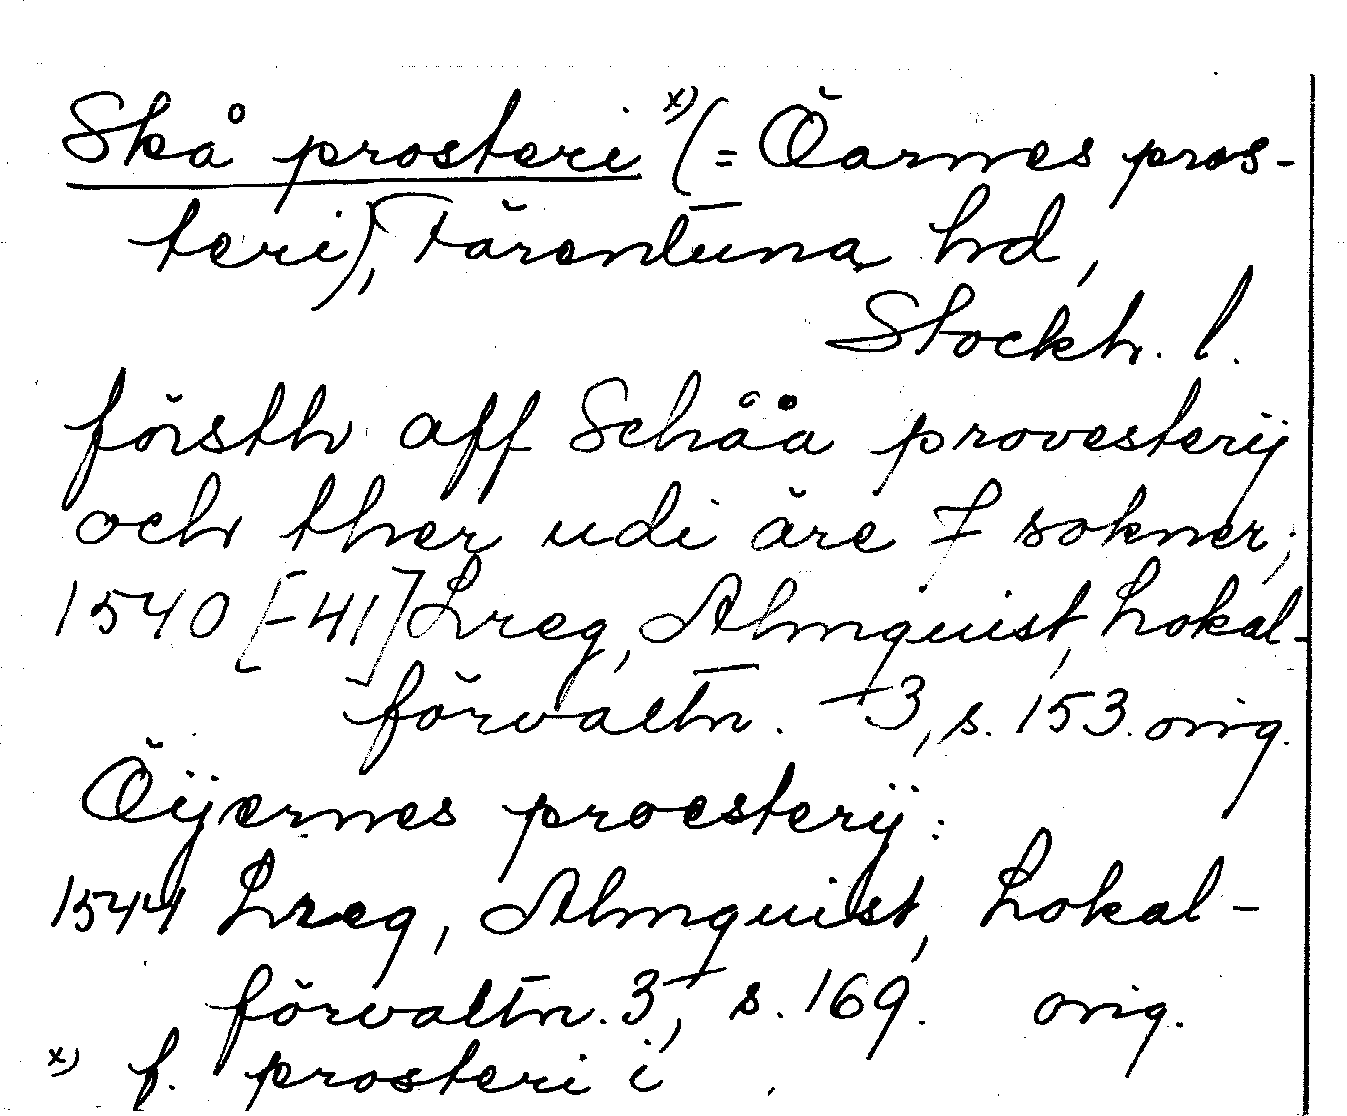 Skå prosteri x) (= Öarnes pros-
teri), Färentuna hd,
Stockh. l.
försth aff Schåå provesterij
och ther udi äre 7 sokner;
1540 [-41] Lreg, Almquist, Lokal-
förvaltn. 3, s. 153. orig.
Öijernes proesterij:
1544 Lreg, Almquist, Lokal-
förvaltn. 3, s. 169. orig.
x) f. prosteri i